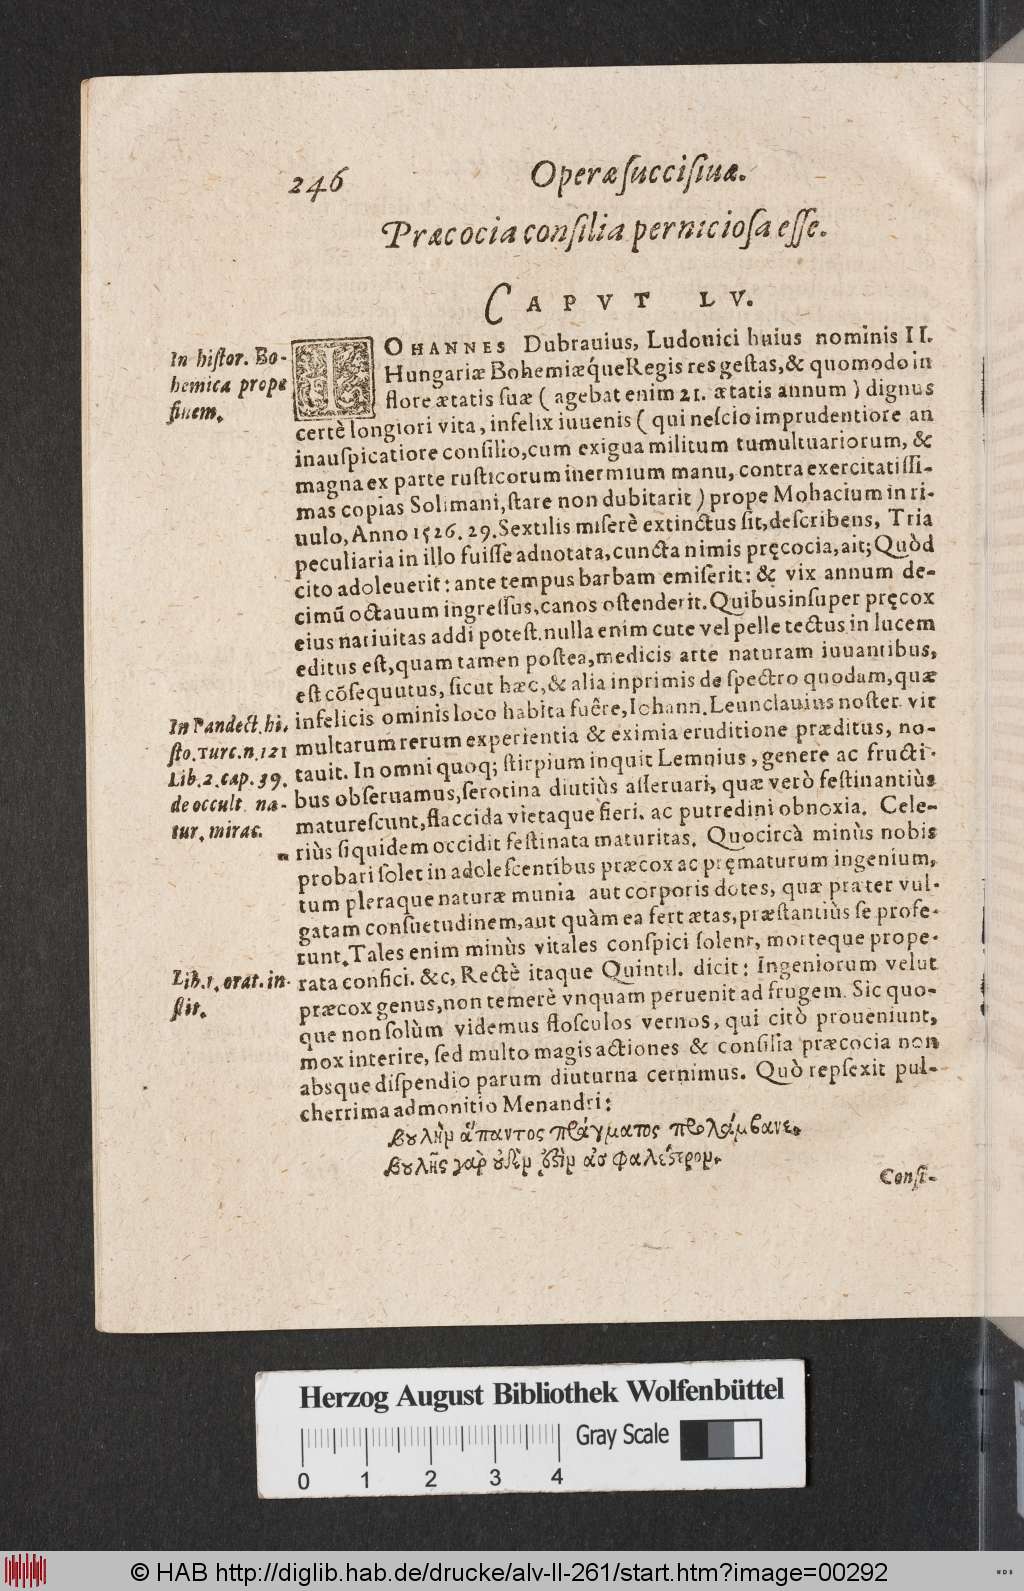 246
Operæ ſucciſiuæ.
Præcocia conſilia pernicioſa eſſe.
CAPVT LV.
In hiſtor. Bo-
hemica prope
finem.
IOHANNES Dubrauius, Ludouici huius nominis II.
Hungariæ Bohemiæq́ue Regis res geſtas, & quomodo in
flore ætatis ſuæ ( agebat enim 21. ætatis annum ) dignus
certè longiori vita, infelix iuuenis ( qui neſcio imprudentiore an
inauſpicatiore conſilio, cum exigua militum tumultuariorum, &
magna ex parte ruſticorum inermium manu, contra exercitatiſſi-
mas copias Solimani, ſtare non dubitarit ) prope Mohacium in ri-
uulo, Anno 1526. 29. Sextilis miſerè extinctus ſit, deſcribens, Tria
peculiaria in illo fuiſſe adnotata, cuncta nimis pręcocia, ait; Quòd
cito adoleuerit: ante tempus barbam emiſerit: & vix annum de-
cimũ octauum ingreſſus, canos oſtenderit. Quibus inſuper pręcox
eius natiuitas addi poteſt. nulla enim cute vel pelle tectus in lucem
editus eſt, quam tamen poſtea, medicis arte naturam iuuantibus,
eſt cõſequutus, ſicut hæc, & alia inprimis de ſpectro quodam, quæ
In Pandect. hi-
ſto. Turc. n. 121
Lib. 2. cap. 39.
de occult. na-
tur. mirac.
infelicis ominis loco habita fuêre, Iohann. Leunclauius noſter vir
multarum rerum experientia & eximia eruditione præditus, no-
tauit. In omni quoq; ſtirpium inquit Lemnius, genere ac fructi-
bus obſeruamus, ſerotina diutiùs aſſeruari, quæ verò feſtinantiùs
matureſcunt, flaccida vietaque fieri. ac putredini obnoxia. Cele-
riùs ſiquidem occidit feſtinata maturitas. Quocircà minùs nobis
probari ſolet in adoleſcentibus præcox ac pręmaturum ingenium,
tum pleraque naturæ munia aut corporis dotes, quæ præter vul-
gatam conſuetudinem, aut quàm ea fert ætas, præſtantiùs ſe profe-
runt. Tales enim minùs vitales conſpici ſolent, morteque prope-
Lib. 1. orat. in-
ſtit.
rata confici. &c, Rectè itaque Quintil. dicit: Ingeniorum velut
præcox genus, non temerè vnquam peruenit ad frugem. Sic quo-
que non ſolùm videmus floſculos vernos, qui citò proueniunt,
mox interire, ſed multo magis actiones & conſilia præcocia non
absque diſpendio parum diuturna cernimus. Quò repſexit pul-
cherrima admonitio Menandri:
βουλὴν ἅπαντος πράγματος προλάμβανε.
βουλῆς γὰρ οὐδὲν ἐστὶν ἀσφαλέστρον.
Conſi-
Herzog August Bibliothek Wolfenbüttel
Gray Scale
0 1 2 3 4
© HAB http://diglib.hab.de/drucke/alv-ll-261/start.htm?image=00292